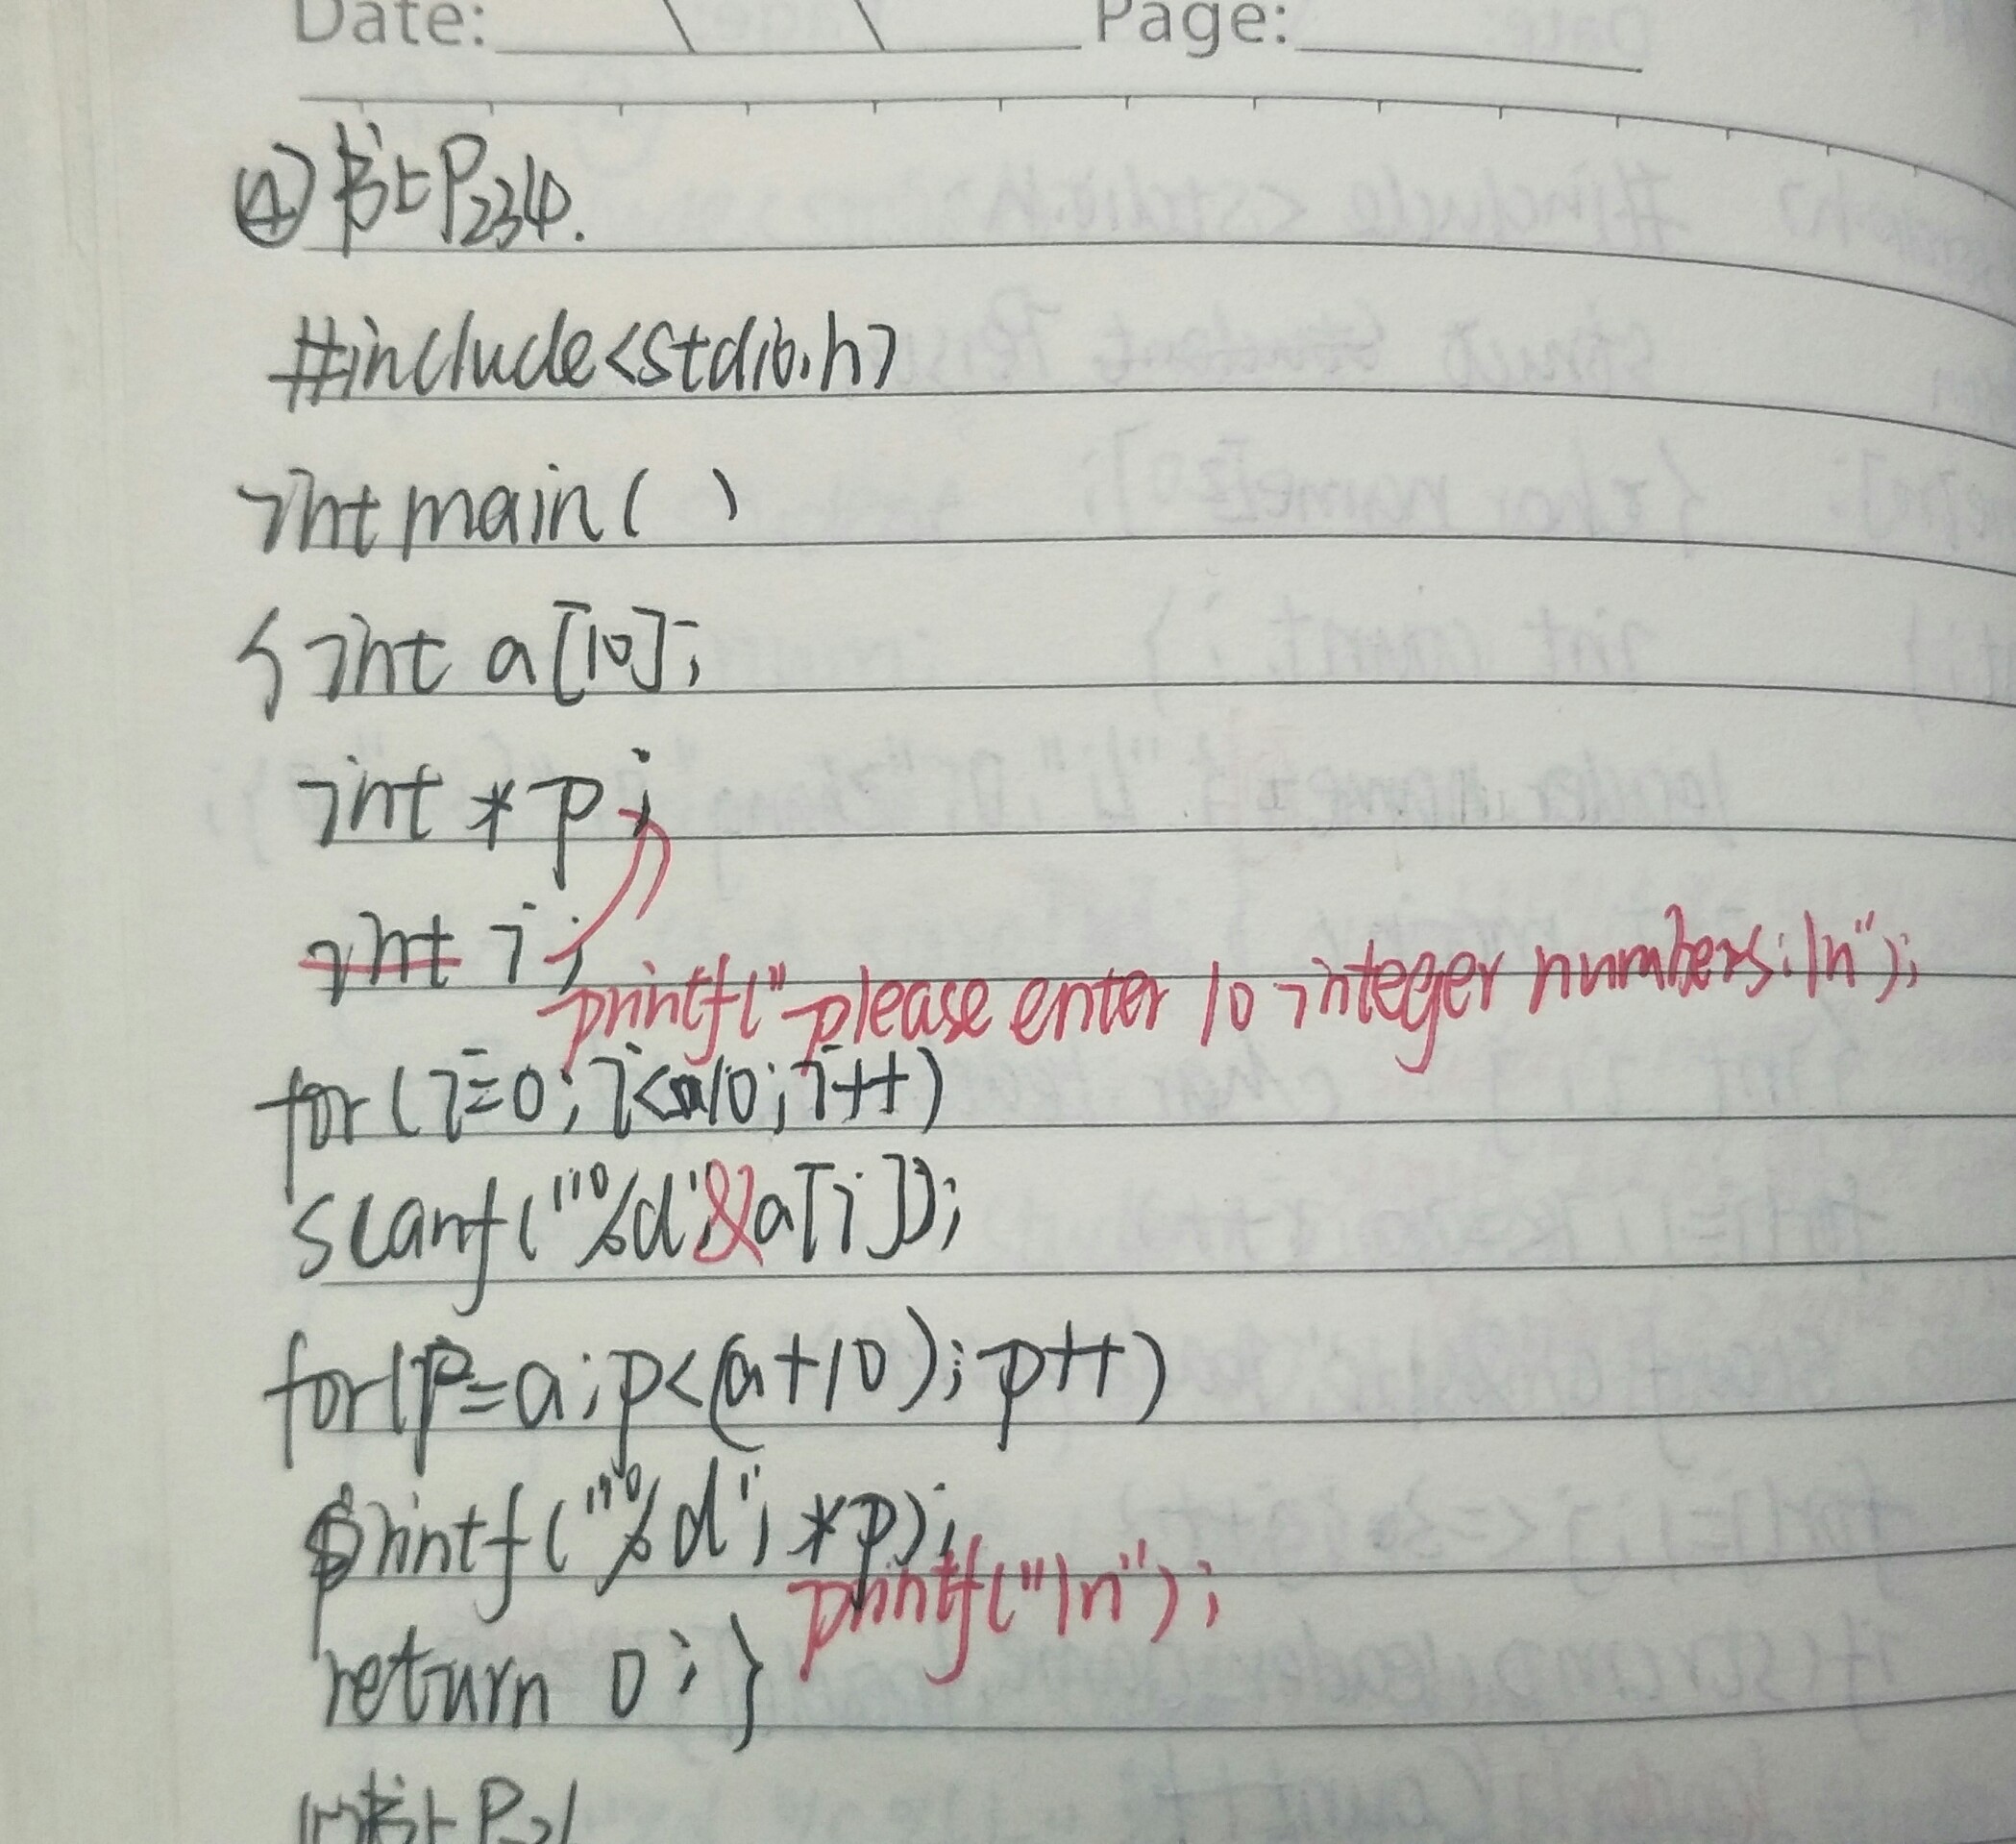 Date: Page:
④书上P234.
#include<stdio.h>
int main( )
{int a[10];
int *p;
int i;
printf("please enter 10 integer numbers:\n");
for(i=0;i<10;i++)
scanf("%d",&a[i]);
for(p=a;p<(a+10);p++)
printf("%d",*p);
printf("\n");
return 0;}
书上P